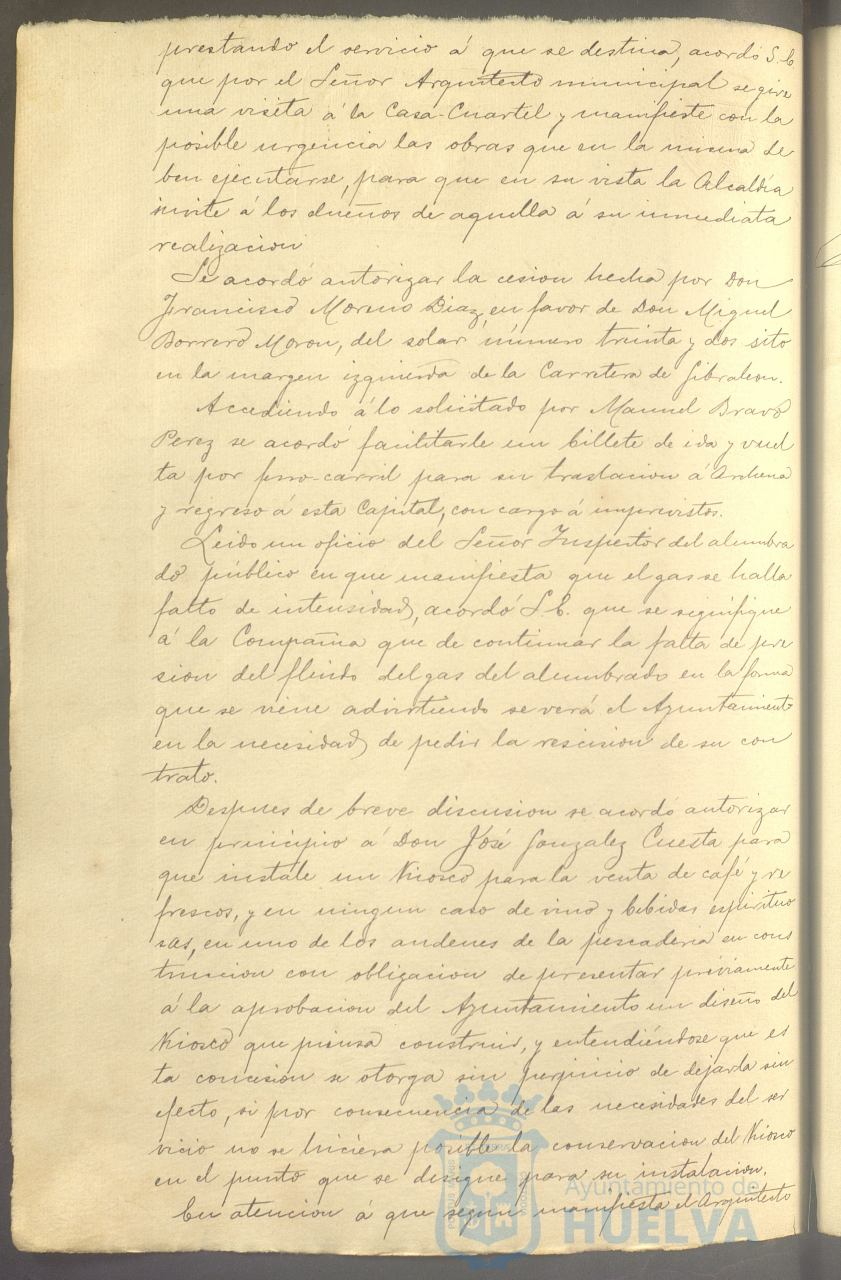 prestando el servicio á que se destina, acordó S.E.
que por el Señor Arquitecto municipal se gire
una visita á la Casa-Cuartel y manifieste con la
posible urgencia las obras que en la misma de
ben ejecutarse, para que en su vista la Alcaldía
invite á los dueños de aquella á su inmediata
realizacion
Se acordó autorizar la cesion hecha por Don
Francisco Moreno Diaz, en favor de Don Miguel
Borrero Moron, del solar número treinta y dos sito
en la margen izquierda de la Carretera de Gibraleon.
Accediendo á lo solicitado por Manuel Bravo
Perez se acordó facilitarle un billete de ida y vuel
ta por ferro-carril para su traslacion á Archena
y regreso á esta Capital, con cargo á imprevistos.
Leido un oficio del Señor Inspector del alumbra
do público en que manifiesta que el gas se halla
falto de intensidad, acordó S.E. que se signifique
á la Compañia que de continuar la falta de pre
sion del fluido del gas del alumbrado en la forma
que se viene advirtiendo se verá el Ayuntamiento
en la necesidad de pedir la rescision de su con
trato.
Despues de breve discusion se acordó autorizar
en principio á Don José Gonzalez Cuesta para
que instale un Kiosco para la venta de café y re
frescos, y en ningun caso de vino y bebidas espirituo
sas, en uno de los andenes de la pescaderia en cons
truccion con obligacion de presentar préviamente
á la aprobacion del Ayuntamiento un diseño del
Kiosco que piensa construir, y entendiéndose que es
ta concesion se otorga sin perjuicio de dejarla sin
efecto, si por consecuencia de las necesidades del ser
vicio no se hiciera posible la conservacion del Kiosco
en el punto que se designe para su instalacion.
En atencion á que segun manifiesta el Arquitecto
Ayuntamiento de
HUELVA